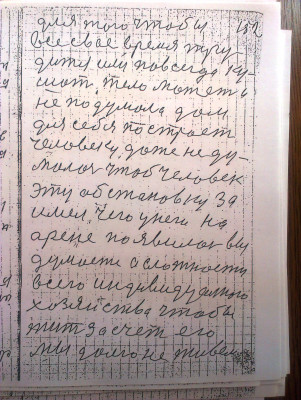 для того чтобы 152
все свое время труд
дится или навсегда ку
шат, тело может и
не подумала дом
для себя построет
человеку, даже не ду
малох чтоб человек
эту обстановку за
имел, чего у него на
арене появилох вы
думасти о сложности
всего индивидуалного
хозяйства чтобы
жит за счет его
мы долго не живем